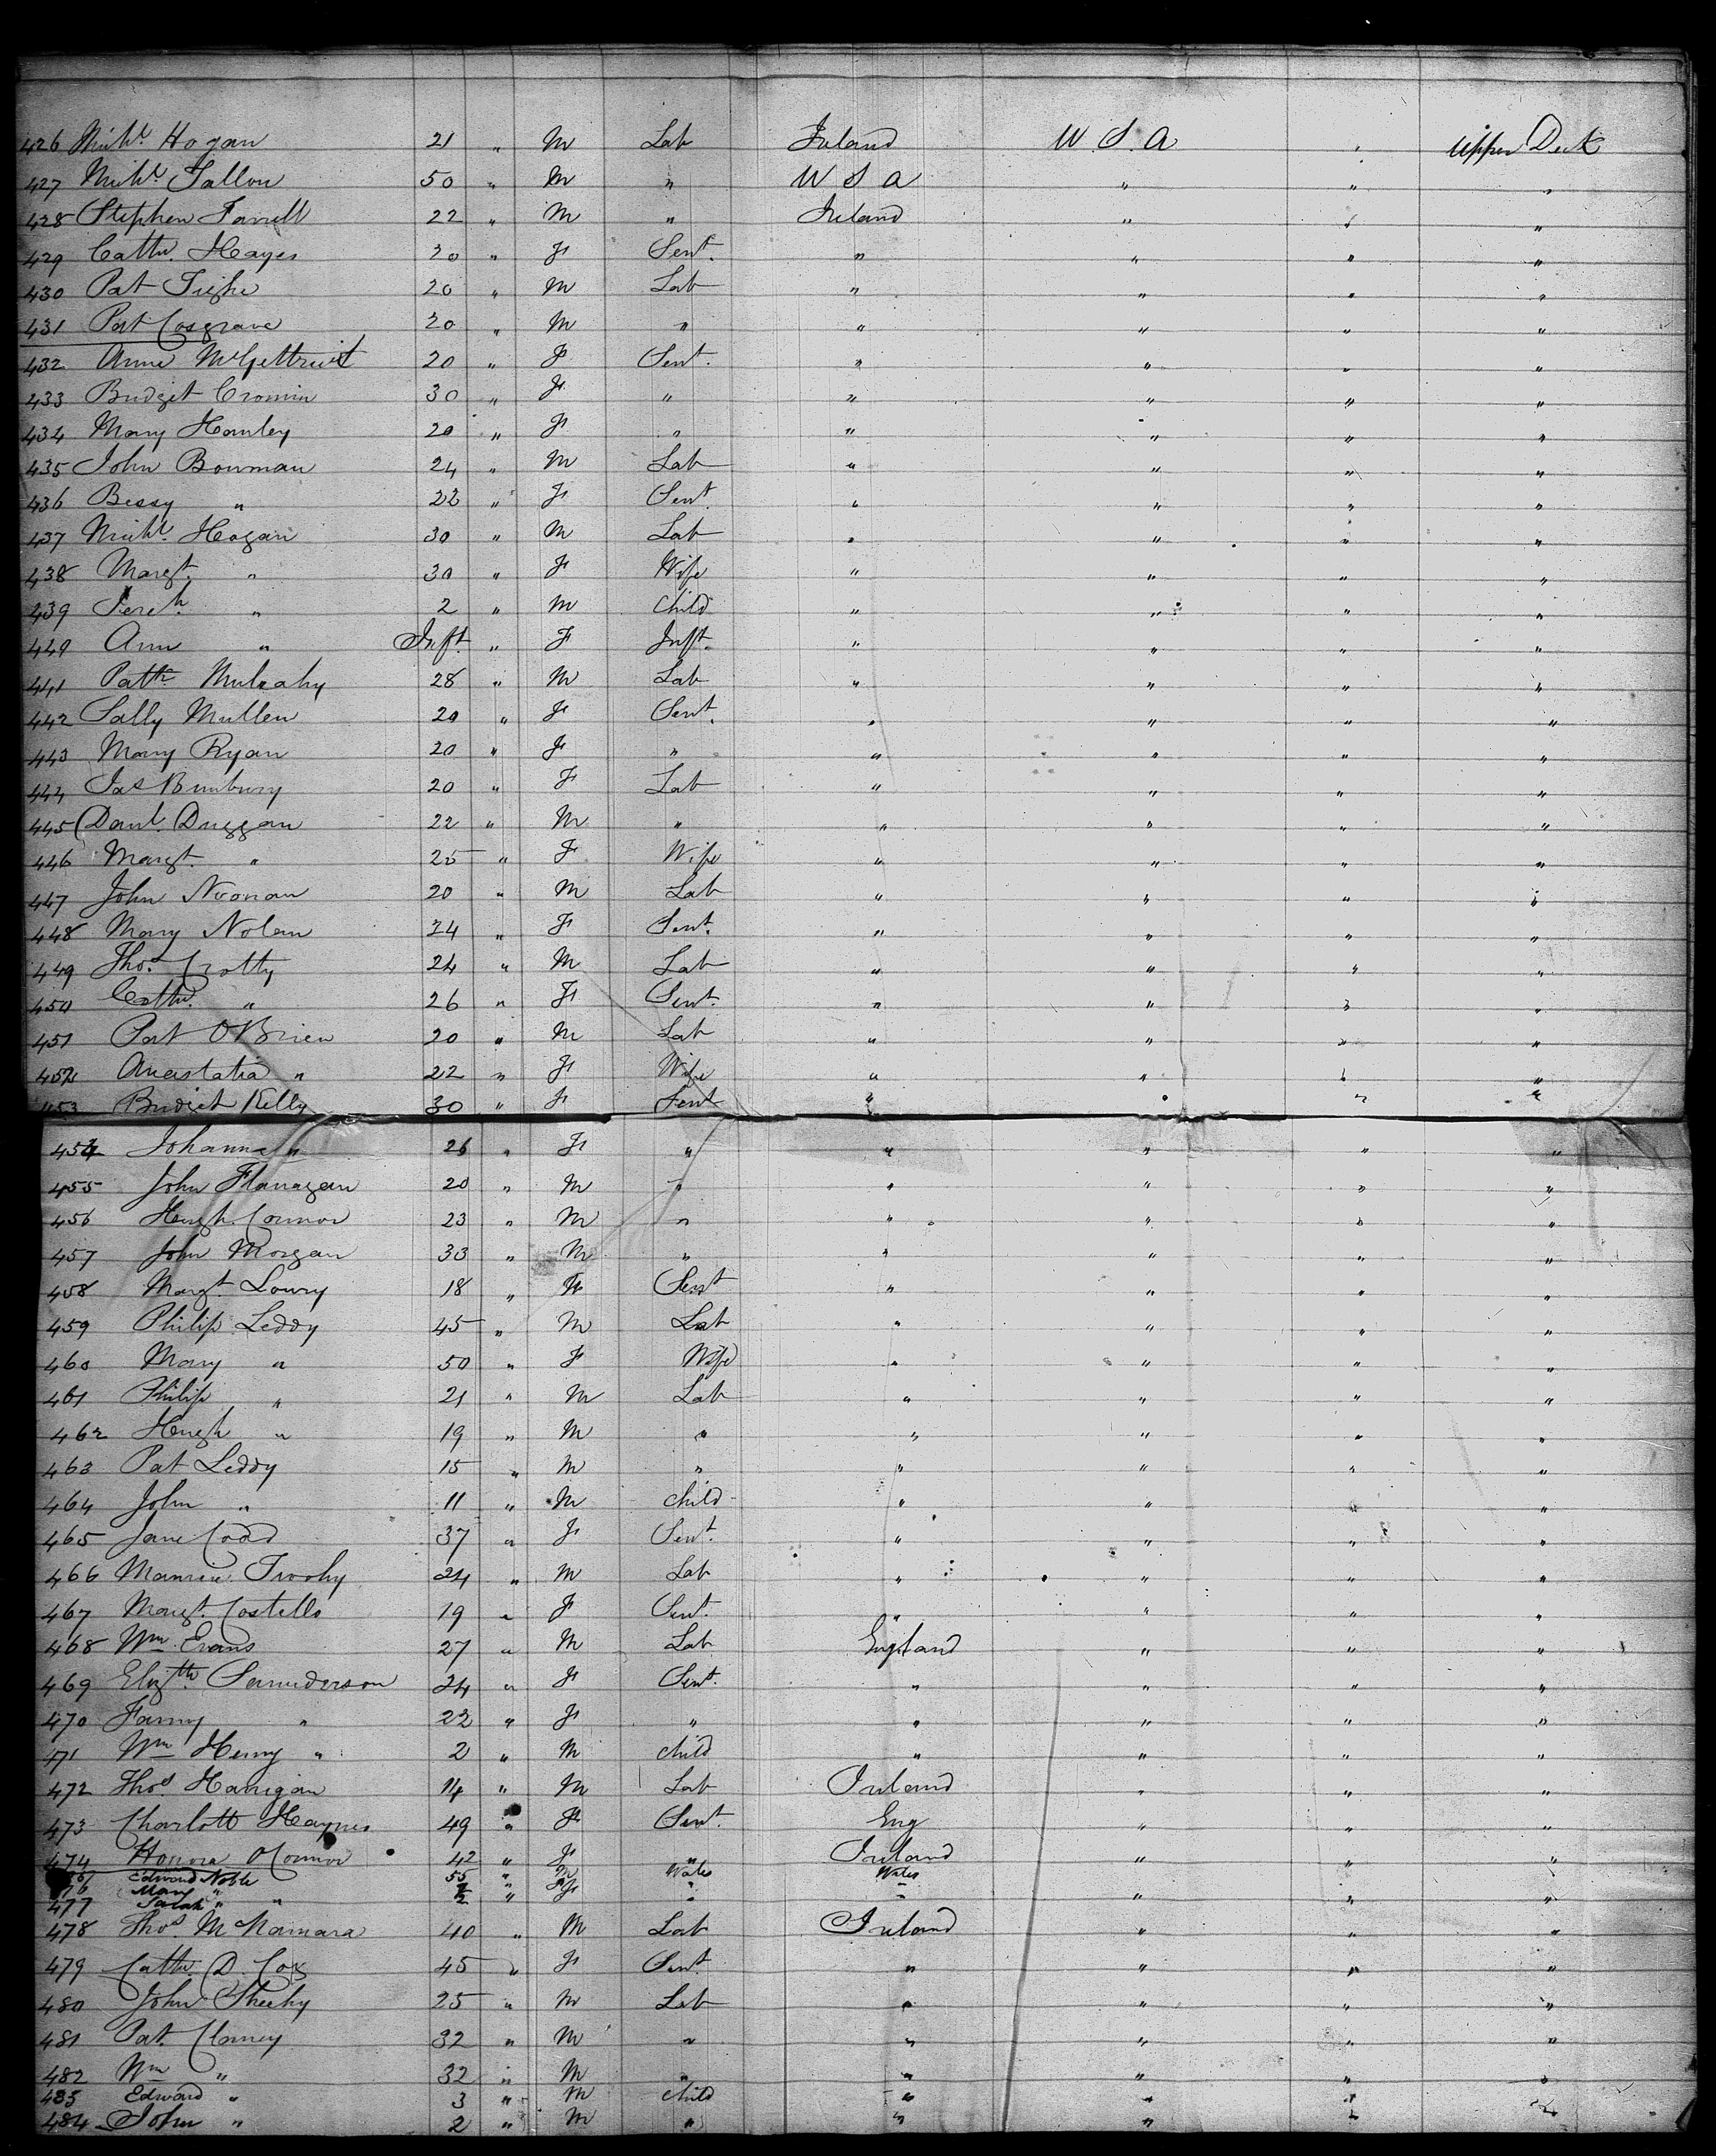 426 Michl. Hogan 21 " M Lab Ireland U.S.A " Upper Deck
427 Michl. Fallon 50 " M " U S A " " "
428 Stephen Farrell 22 " M " Ireland " " "
429 Cathe. Hayes 20 " F Sent. " " " "
430 Pat Tighe 20 " M Lab " " " "
431 Pat Cosgrave 20 " M " " " " "
432 Anne 20 " F Sent. " " " "
433 Bridget Cronin 30 " F " " " " "
434 Mary Hanley 20 " F " " " " "
435 John Bowman 24 " M Lab " " " "
436 Bessy " 22 " F Sent " " " "
437 Michl. Hogan 30 " M Lab " " " "
438 Margt. " 30 " F Wife " " " "
439 " 2 " M Child " " " "
440 Ann " Inft. " F Inft. " " " "
441 Pattk. Mulcahy 28 " M Lab " " " "
442 Sally Mullen 20 " F Sent. " " " "
443 Mary Ryan 20 " F " " " " "
444 Jas Bunbury 20 " F Lab " " " "
445 Danl. Duggan 22 " M " " " " "
446 Margt. " 25 " F Wife " " " "
447 John Noonan 20 " M Lab " " " "
448 Mary Nolan 24 " F Sent. " " " "
449 Thos. Crotty 24 " M Lab " " " "
450 Cathe. " 26 " F Sent. " " " "
451 Pat O'Brien 20 " M Lab " " " "
452 Anastatia " 22 " F Wife " " " "
453 Bridget Kelly 30 " F Sent " " " "
454 Johanna " 26 " F " " " " "
455 John Flanagan 20 " M " " " " "
456 Hugh Connor 23 " M " " " " "
457 John Morgan 33 " M " " " " "
458 Margt. Lowry 18 " F Sent " " " "
459 Philip Leddy 45 " M Lab " " " "
460 Mary " 50 " F Wife " " " "
461 Philip " 21 " M Lab " " " "
462 Hugh " 19 " M " " " " "
463 Pat Leddy 15 " M " " " " "
464 John " 11 " M Child " " " "
465 Jane Codd 37 " F Sent. " " " "
466 Twohy 24 " M Lab " " " "
467 Margt. Costello 19 " F Sent. " " " "
468 Wm. Evans 27 " M Lab England " " "
469 Elizth. Saunderson 24 " F Sent. " " " "
470 Fanny " 22 " F " " " " "
471 Wm Henry " 2 " M child " " " "
472 Thos. Hanigan 14 " M Lab Ireland " " "
473 Charlott Haynes 49 " F Sent. Eng " " "
474 Honora OConnor 42 " F " Ireland " " "
Edward Noble 55 " M Wales Wales
76 Mary " " F " "
477 Sarah " 2 " F " " " " "
478 Thos. McNamara 40 " M Lab Ireland " " "
479 Cathe. D. Cox 45 " F Sent. " " " "
480 John Sheehy 25 " M Lab " " " "
481 Pat. Clancy 32 " M " " " " "
482 Wm " 32 " M " " " " "
483 Edward " 3 " M child " " " "
484 John " 2 " M " " " " "